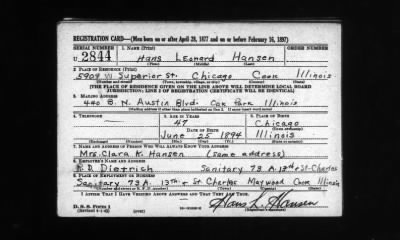 REGISTRATION CARD—(Men born on or after April 28, 1877 and on or before February 16, 1897)
SERIAL NUMBER 1. NAME (Print) ORDER NUMBER
U 2844 Hans Leonard Hansen
(First) (Middle) (Last)
2. PLACE OF RESIDENCE (Print)
5909 W Superior St. Chicago Cook Illinois
(Number and street) (Town, township, village, or city) (County) (State)
[THE PLACE OF RESIDENCE GIVEN ON THE LINE ABOVE WILL DETERMINE LOCAL BOARD
JURISDICTION; LINE 2 OF REGISTRATION CERTIFICATE WILL BE IDENTICAL]
3. MAILING ADDRESS
440 B. N. Austin Blvd. Oak Park Illinois
[Mailing address if other than place indicated on line 2. If same insert word same]
4. TELEPHONE 5. AGE IN YEARS 6. PLACE OF BIRTH
47 Chicago
DATE OF BIRTH (Town or county)
June 25 1894 Illinois
(Mo.) (Day) (Yr.) (State or country)
7. NAME AND ADDRESS OF PERSON WHO WILL ALWAYS KNOW YOUR ADDRESS
Mrs. Clara K. Hansen (same address)
8. EMPLOYER'S NAME AND ADDRESS
R. D. Dietrich Sanitary 73 A. 13th + St-Charles
9. PLACE OF EMPLOYMENT OR BUSINESS
Sanitary 73 A. 13th + St Charles Maywood Cook Illinois
(Number and street or R. F. D. number) (Town) (County) (State)
I AFFIRM THAT I HAVE VERIFIED ABOVE ANSWERS AND THAT THEY ARE TRUE.
D. S. S. Form 1
(Revised 4-1-42) (over) Hans L. Hansen
(Registrant's signature)